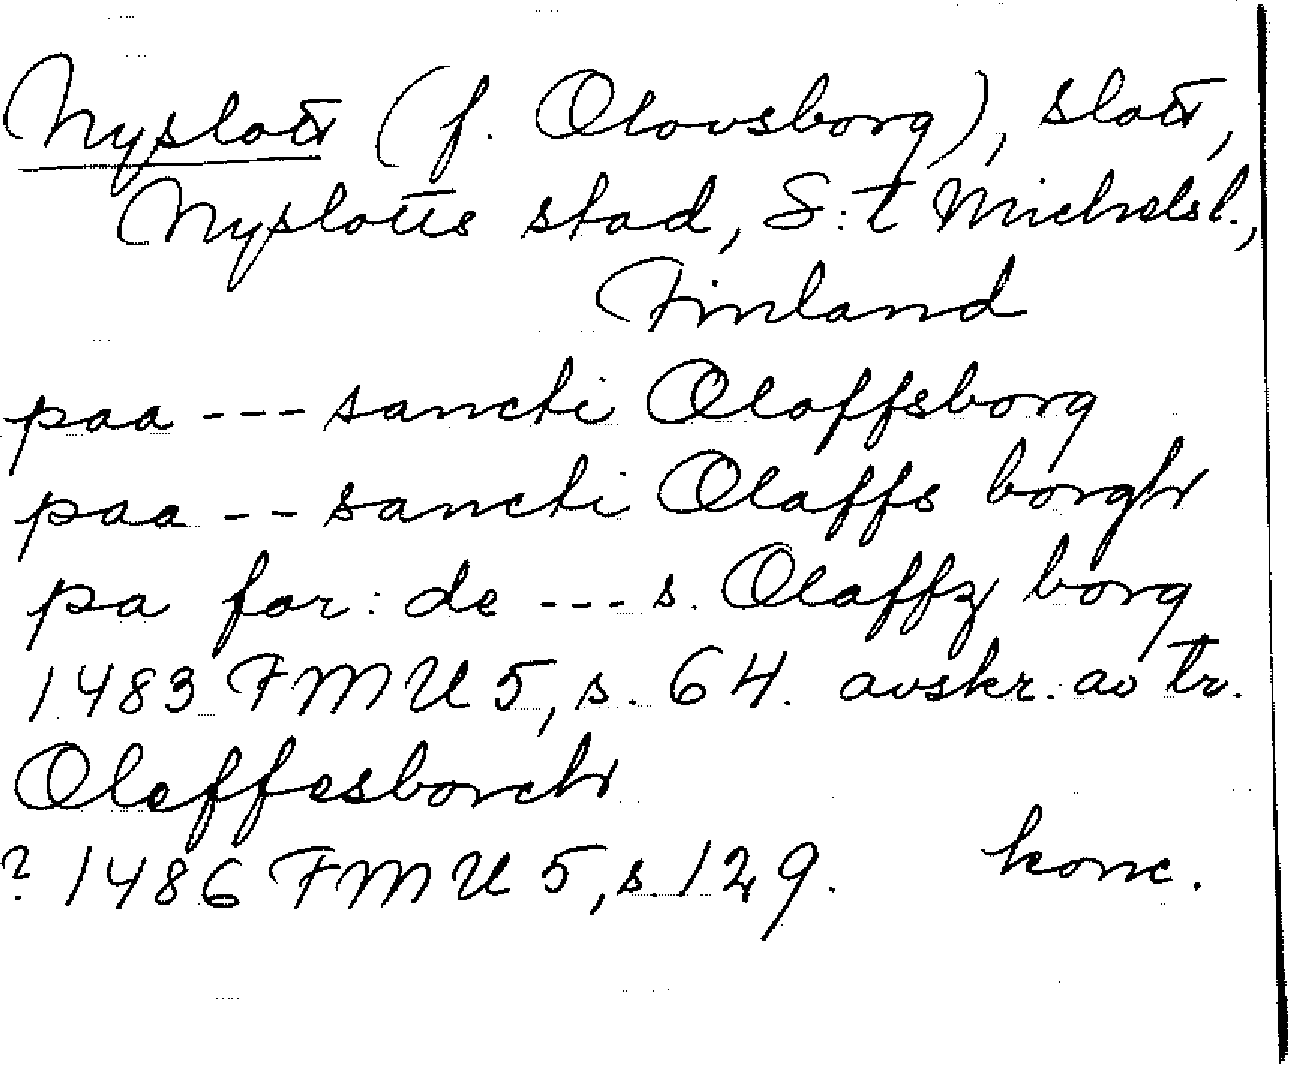 Nyslott (f. Olovsborg), slott,
Nyslotts stad, S:t Michels l.,
Finland
paa --- sancti Olaffsborg
paa -- sancti Olaffs borgh
pa for: de --- s. Olaffz borg
1483 FMU 5, s. 64. avskr. av tr.
Oleffesborch
? 1486 FMU 5, s. 129. konc.